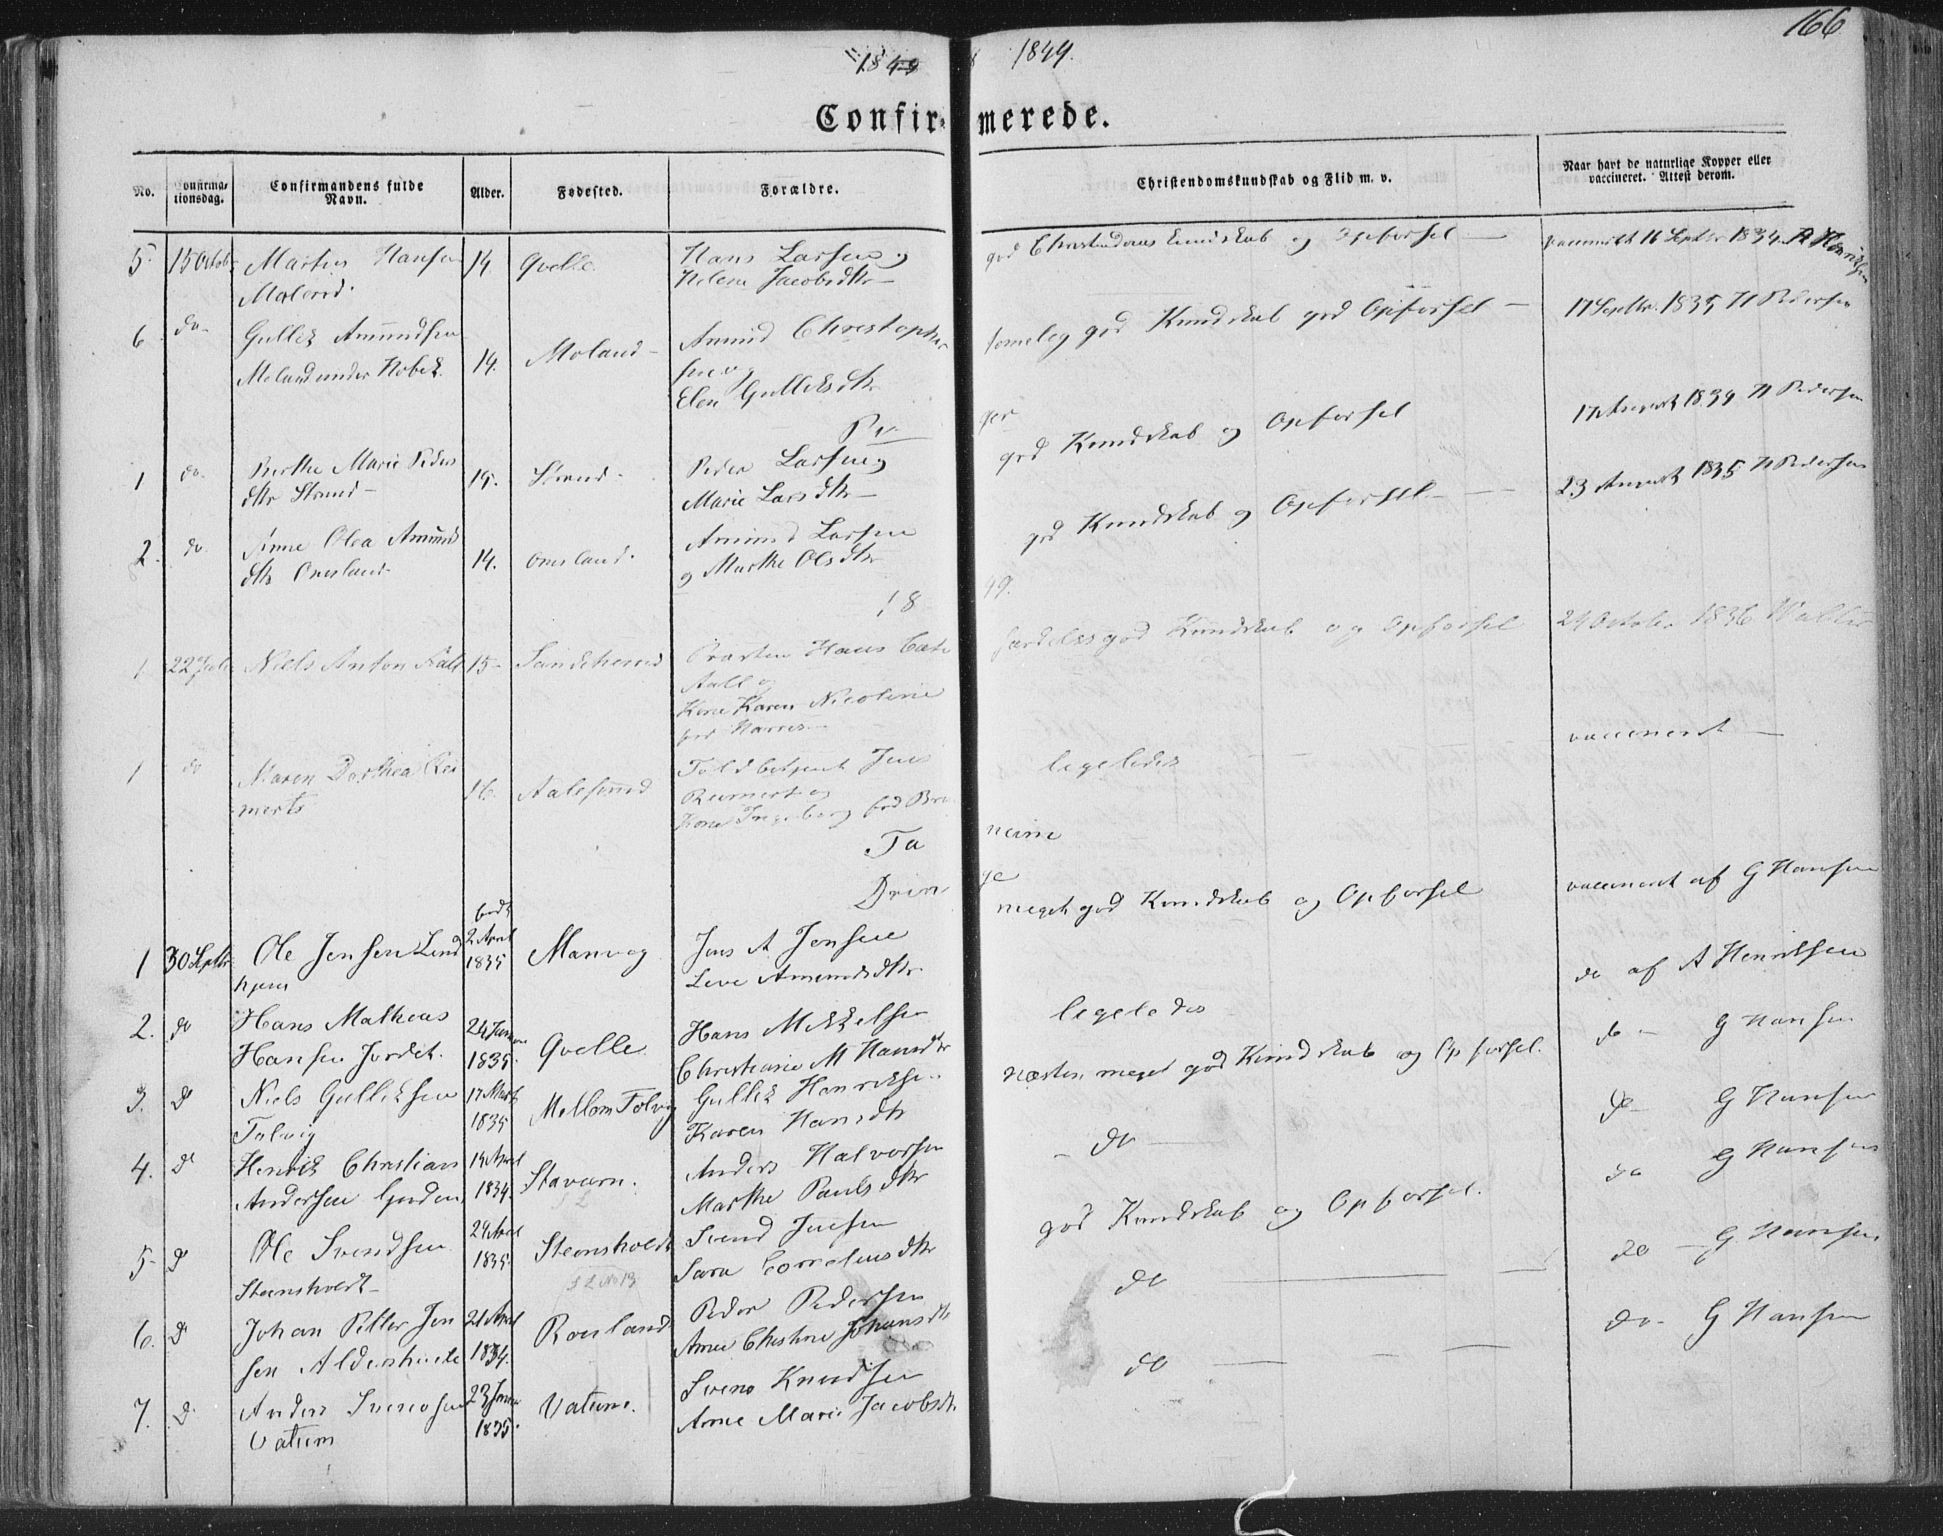 166
1849
1849.
Confirmerede.
No.
Confirmationsdag.
Confirmandens fulde Navn.
Alder.
Fødested.
Forældre.
Christendomskundskab og Flid m. v.
Naar havt de naturlige Kopper eller vaccineret. Attest derom.
5. 15 Octob. Martin Hansen 14. Qvelle. Hans Larsen og
Helene Jacobsdtr
god Christendoms kundskab og Opførsel vaccineret 16 Septbr 1834. A Henriksen
6 do Gullik Amundsen
Moland under Hobek. 14. Moland Amund Christophersen og
Elen Gulliksdtr
temelig god Kundskab god Opførsel 17 Septbr. 1835 H Pedersen
Piger
1 do. Berthe Marie Peders
dtr Strand 15. Strand Peder Larsen og
Marie Larsdtr
god Kundskab og Opførsel 17 August 1834 H Pedersen
2. do Anne Olea Amunds
dtr Onesland 14. Onesland. Amund Larsen
og Marthe Olsdtr
god Kundskab og Opførsel 23 August 1835 H Pedersen
1849.
1 22 Juli Niels Anton Aall 15 Sandeherred Præsten Hans Cato
Aall og
Kone Karen Nicoline
særdeles god Kundskab og Opførsel 24 October 1836
1 do Maren Dorthea Rei
merts 16. Aalesund Toldbetjent Jens
Reimert og
Kone Ingeborg fød
ligeledes vaccineret
Tanum
Drenge
1 30 Septbr. Ole Jensen Lind
hjem
født
2 April
1835 Manvog Jens A Jensen
Live Amundsdtr
meget god Kundskab og Opførsel vaccineret af G Hansen
2. do Hans Matheus
Hansen Jordet. 24 Januar
1835. Qvelle. Hans Mikkelsen
Christiane M Hansdtr
ligeledes do af A Henriksen
3. do Niels Gulliksen
Tolvig 17 Marts
1835 Mellom Tolvig Gullik Henriksen
Karen Hansdtr
næsten meget god Kundskab og Opførsel. do G Hansen
4. do Henrik Christian
Andersen 14 April
1834. Stavarn. Anders Halvorsen
Marthe Paulsdtr
do do G Hansen
5 do Ole Svendsen
Steensholdt 24 April
1835 Steensholdt Svend Jensen
Sara Corneliusdtr
god Kundskab og Opførsel. do G Hansen
6. do Johan Petter Jen
sen 21 April
1834. Roesland Peder Pedersen
Anne Christine Johansdtr
do do G Hansen.
7. do Anders Svensen
Vatum 23 Januar
1835. Vatum. Svend Knudsen
Anne Marie Jacobsdtr
do do G Hansen